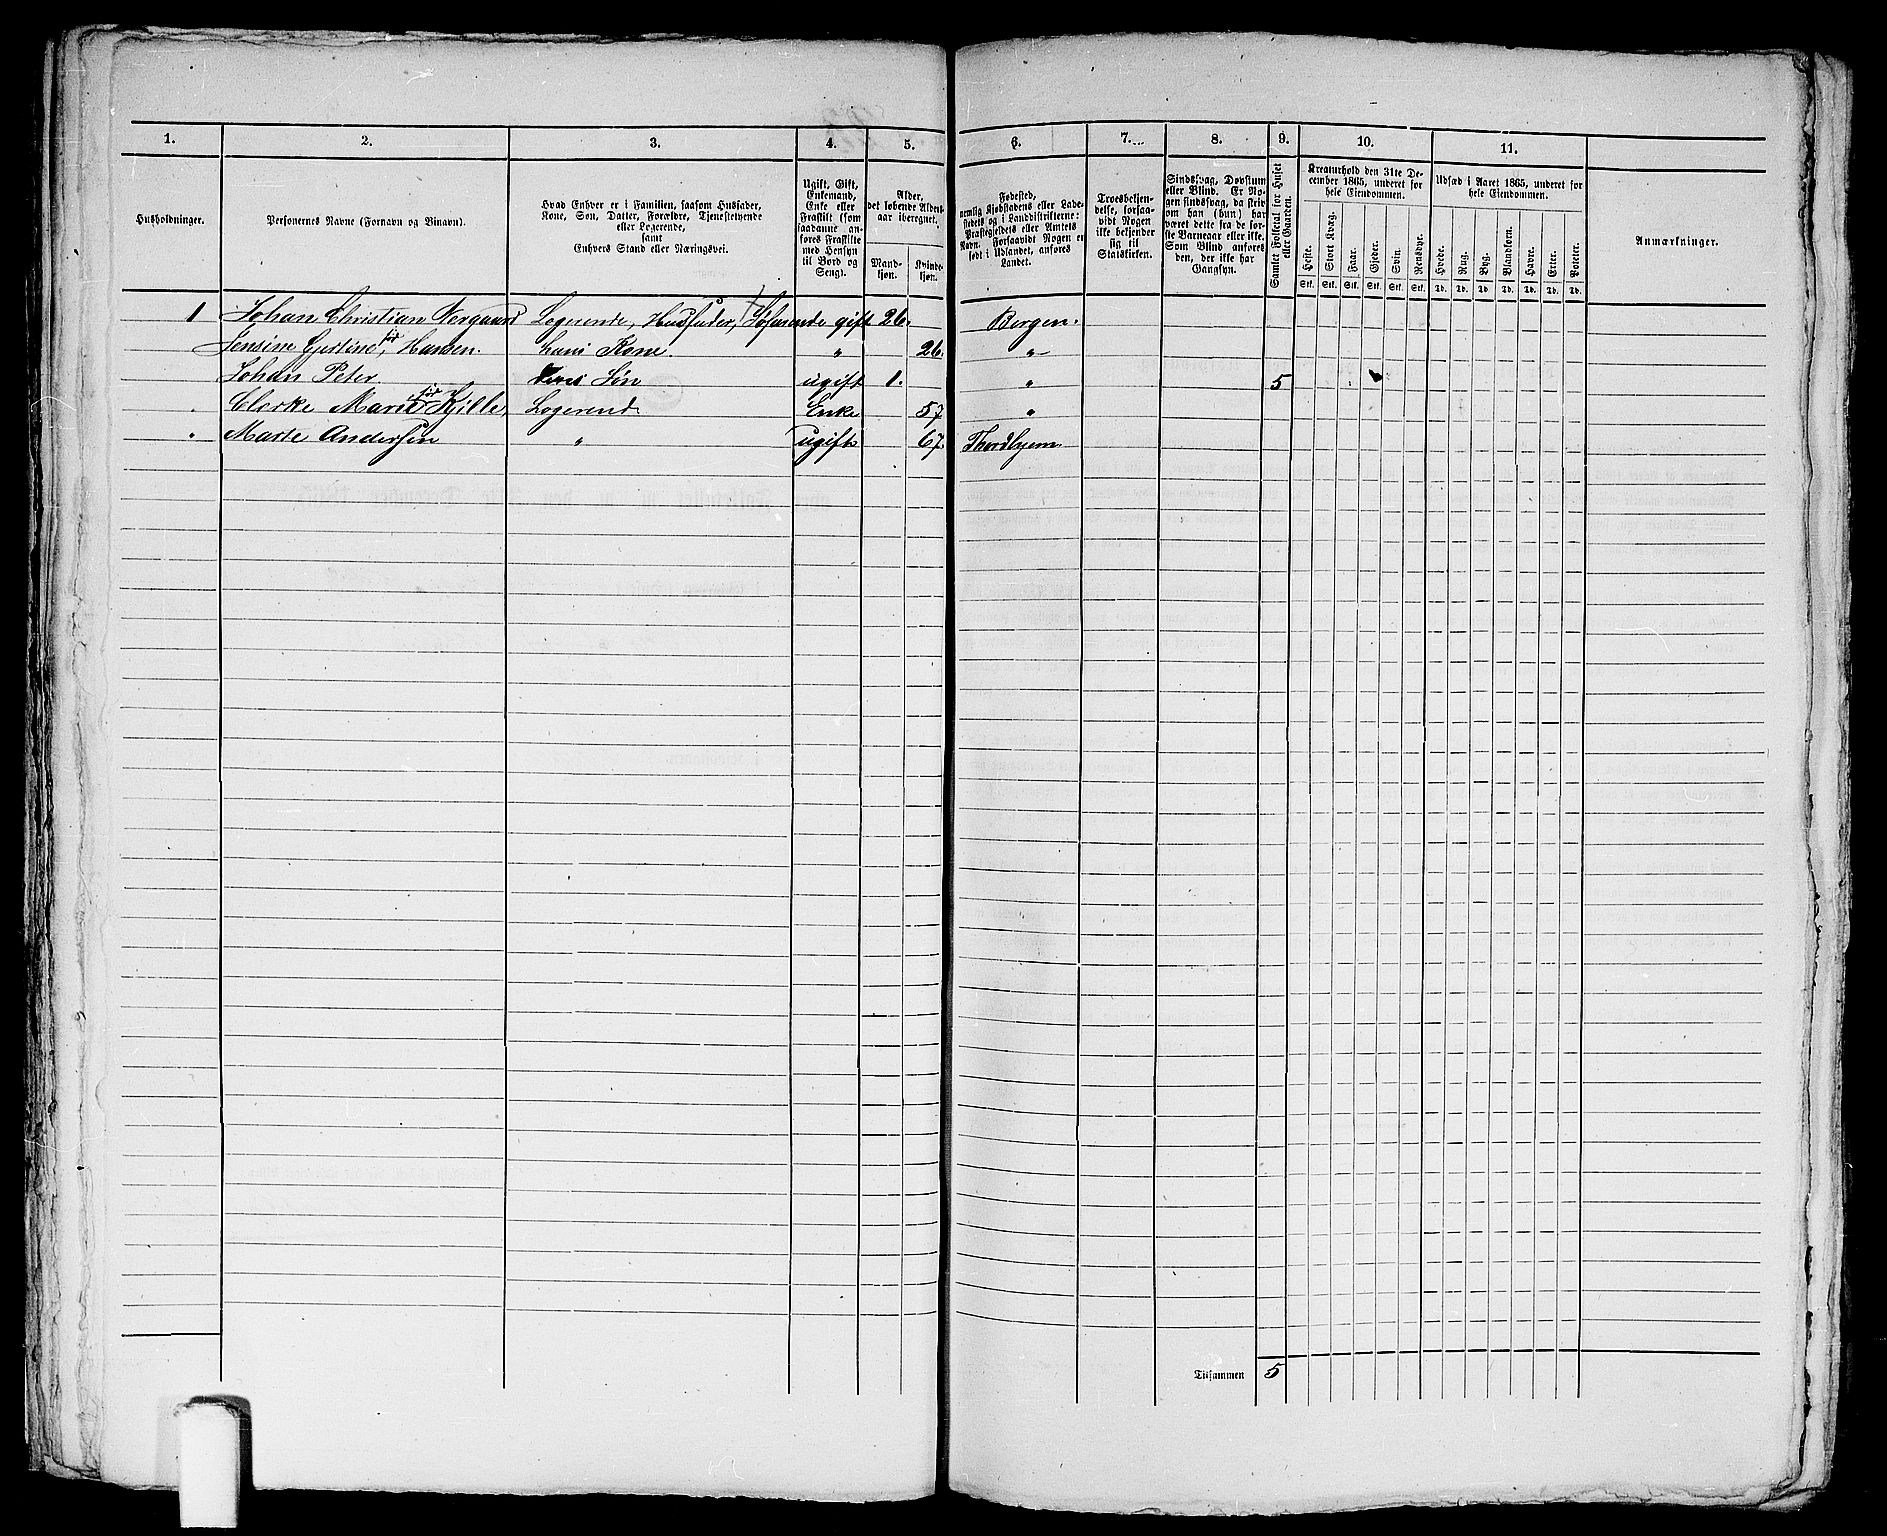 1. 2. 3. 4. 5. 6. 7. 8. 9. 10. 11.
Husholdninger.
Personernes Navne (Fornavn og Binavn).
Hvad Enhver er i Familien, saasom Husfader,
Kone, Søn, Datter, Forældre, Tjenestetyende
eller Logerende,
samt
Enhvers Stand eller Næringsvei.
Ugift, Gift,
Enkemand,
Enke eller
Fraskilt (som
saadanne an-
føres Fraskilte
med Hensyn
til Bord og
Seng).
Alder,
det løbende Alders-
aar iberegnet.
Mand-
kjøn.
Kvinde-
kjøn.
Fødested,
nemlig Kjøbstadens eller Lade-
stedets og i Landdistrikterne:
Præstegjeldets eller Amtets
Navn. Forsaavidt Nogen er
født i Udlandet, anføres
Landet.
Troesbekjen-
delse, forsaa-
vidt Nogen
ikke bekjender
sig til
Statskirken.
Sindssvag, Døvstum
eller Blind. Er No-
gen sindssvag, da skriv
om han (hun) har
været dette fra de før-
ste Barneaar eller ikke.
Som Blind ansøres
den, der ikke har
Gangsyn.
Samlet Folketal for Huset
eller Gaarden.
Kreaturhold den 31te De-
cember 1865, underet for
hele Eiendommen.
Heste. Stort Kvæg. Faar. Gjeder. Svin. Rensdyr.
Stk. Stk. Stk. Stk. Stk. Stk.
Udsæd i Aaret 1865, underet for
hele Eiendommen.
Hvede. Rug. Byg. Blandkorn. Havre. Erter. Poteter.
Td. Td. Td. Td. Td. Td. Td.
Anmærkninger.
1 Johan Christian Nergaard Logerende, Husfader, Søfarende gift 26. Bergen.
Jensine Gjertine, før Hansen. hans Kone " 26. "
Johan Peter Deres Søn ugift 1. " 5
Clerke Marie før Kjille, Logerend Enke 57 "
" Marte Andersen " ugift 67. Thordhjem
Tilsammen 5